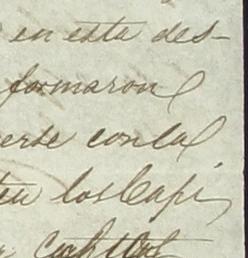 en esta des-
formaron
erse con la
los Capi